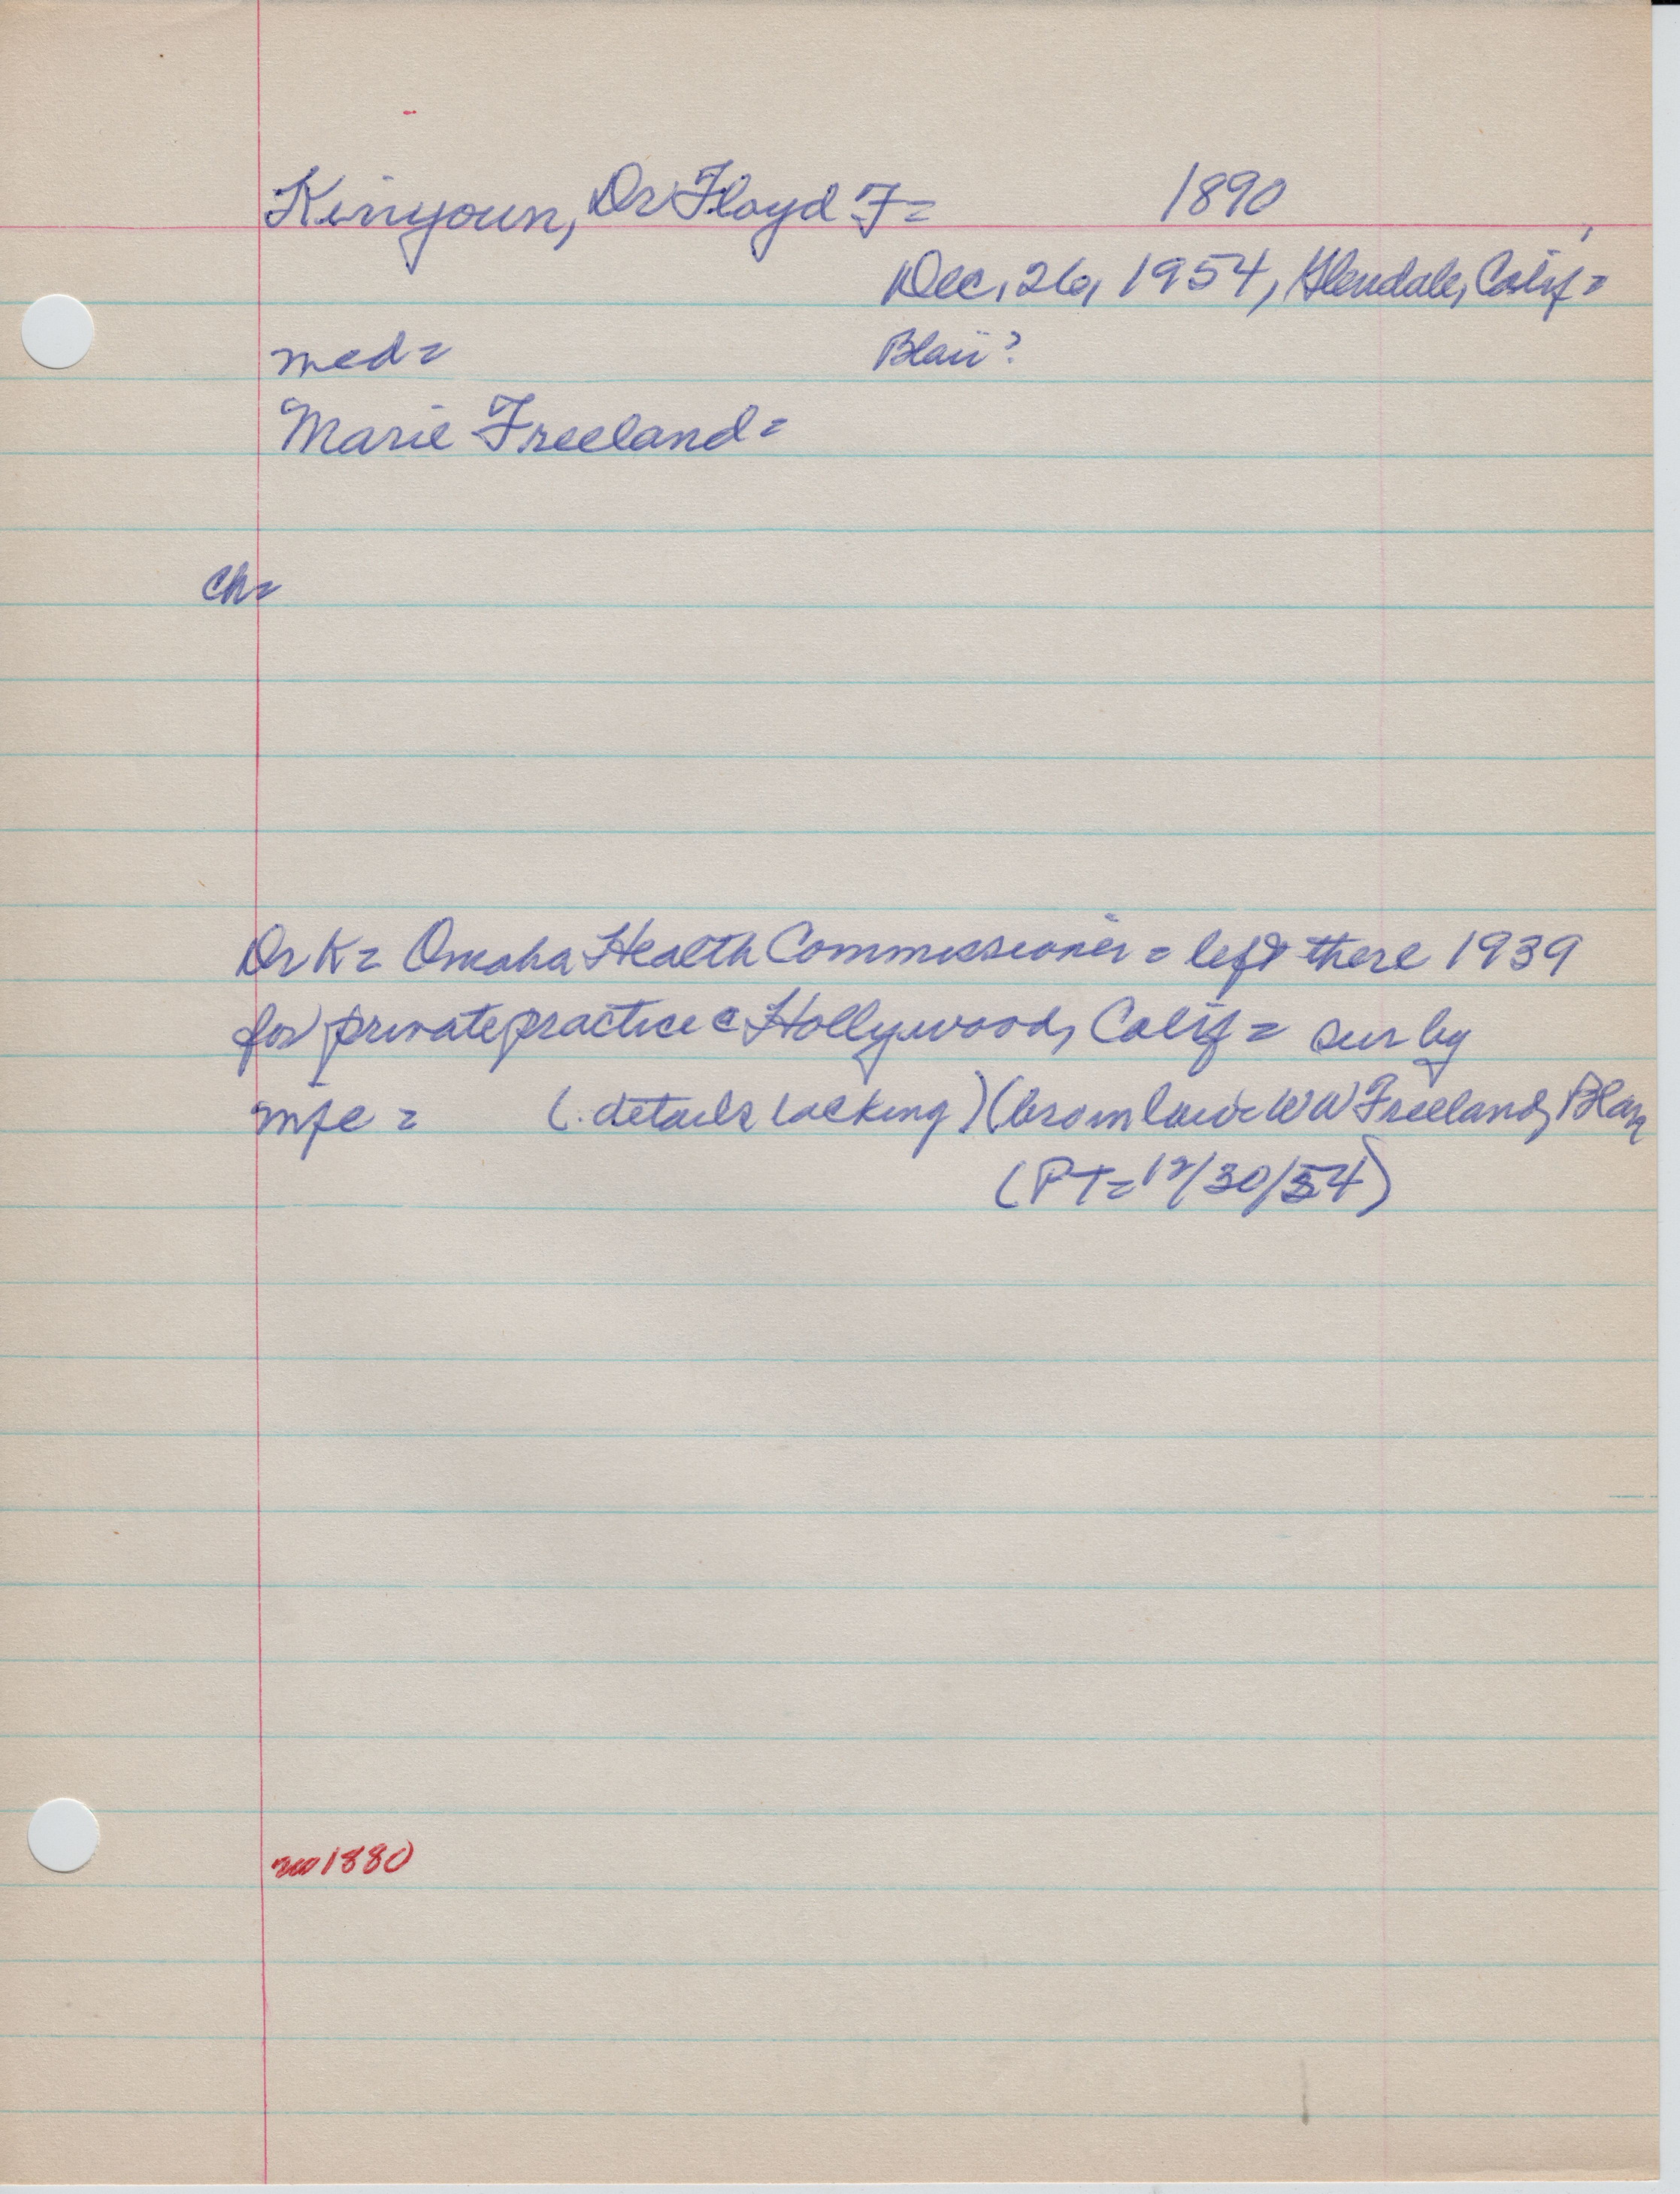 Kinyoun, Dr Floyd F= 1890
Dec, 26, 1954, Glendale, Calif=
med= Blair?
Marie Freeland=
ch=
Dr K= Omaha Health Commissioner= left there 1939
for private practice @ Hollywood, Calif= sur by
mfe = (details lacking) (bro in law= W W Freeland, Blair
(PT=12/30/54)
1880